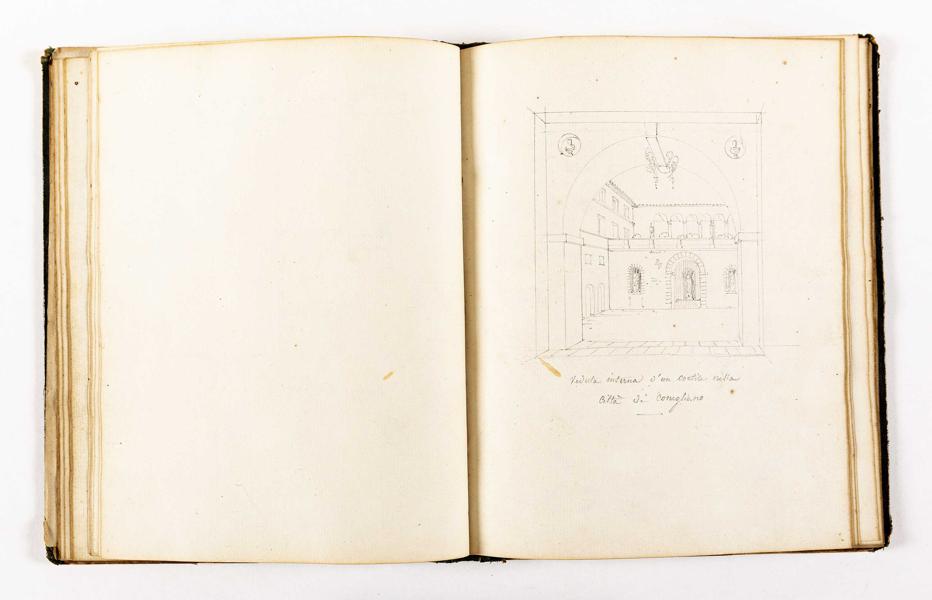 Veduta interna d'un cortile nella
Città di Conigliano